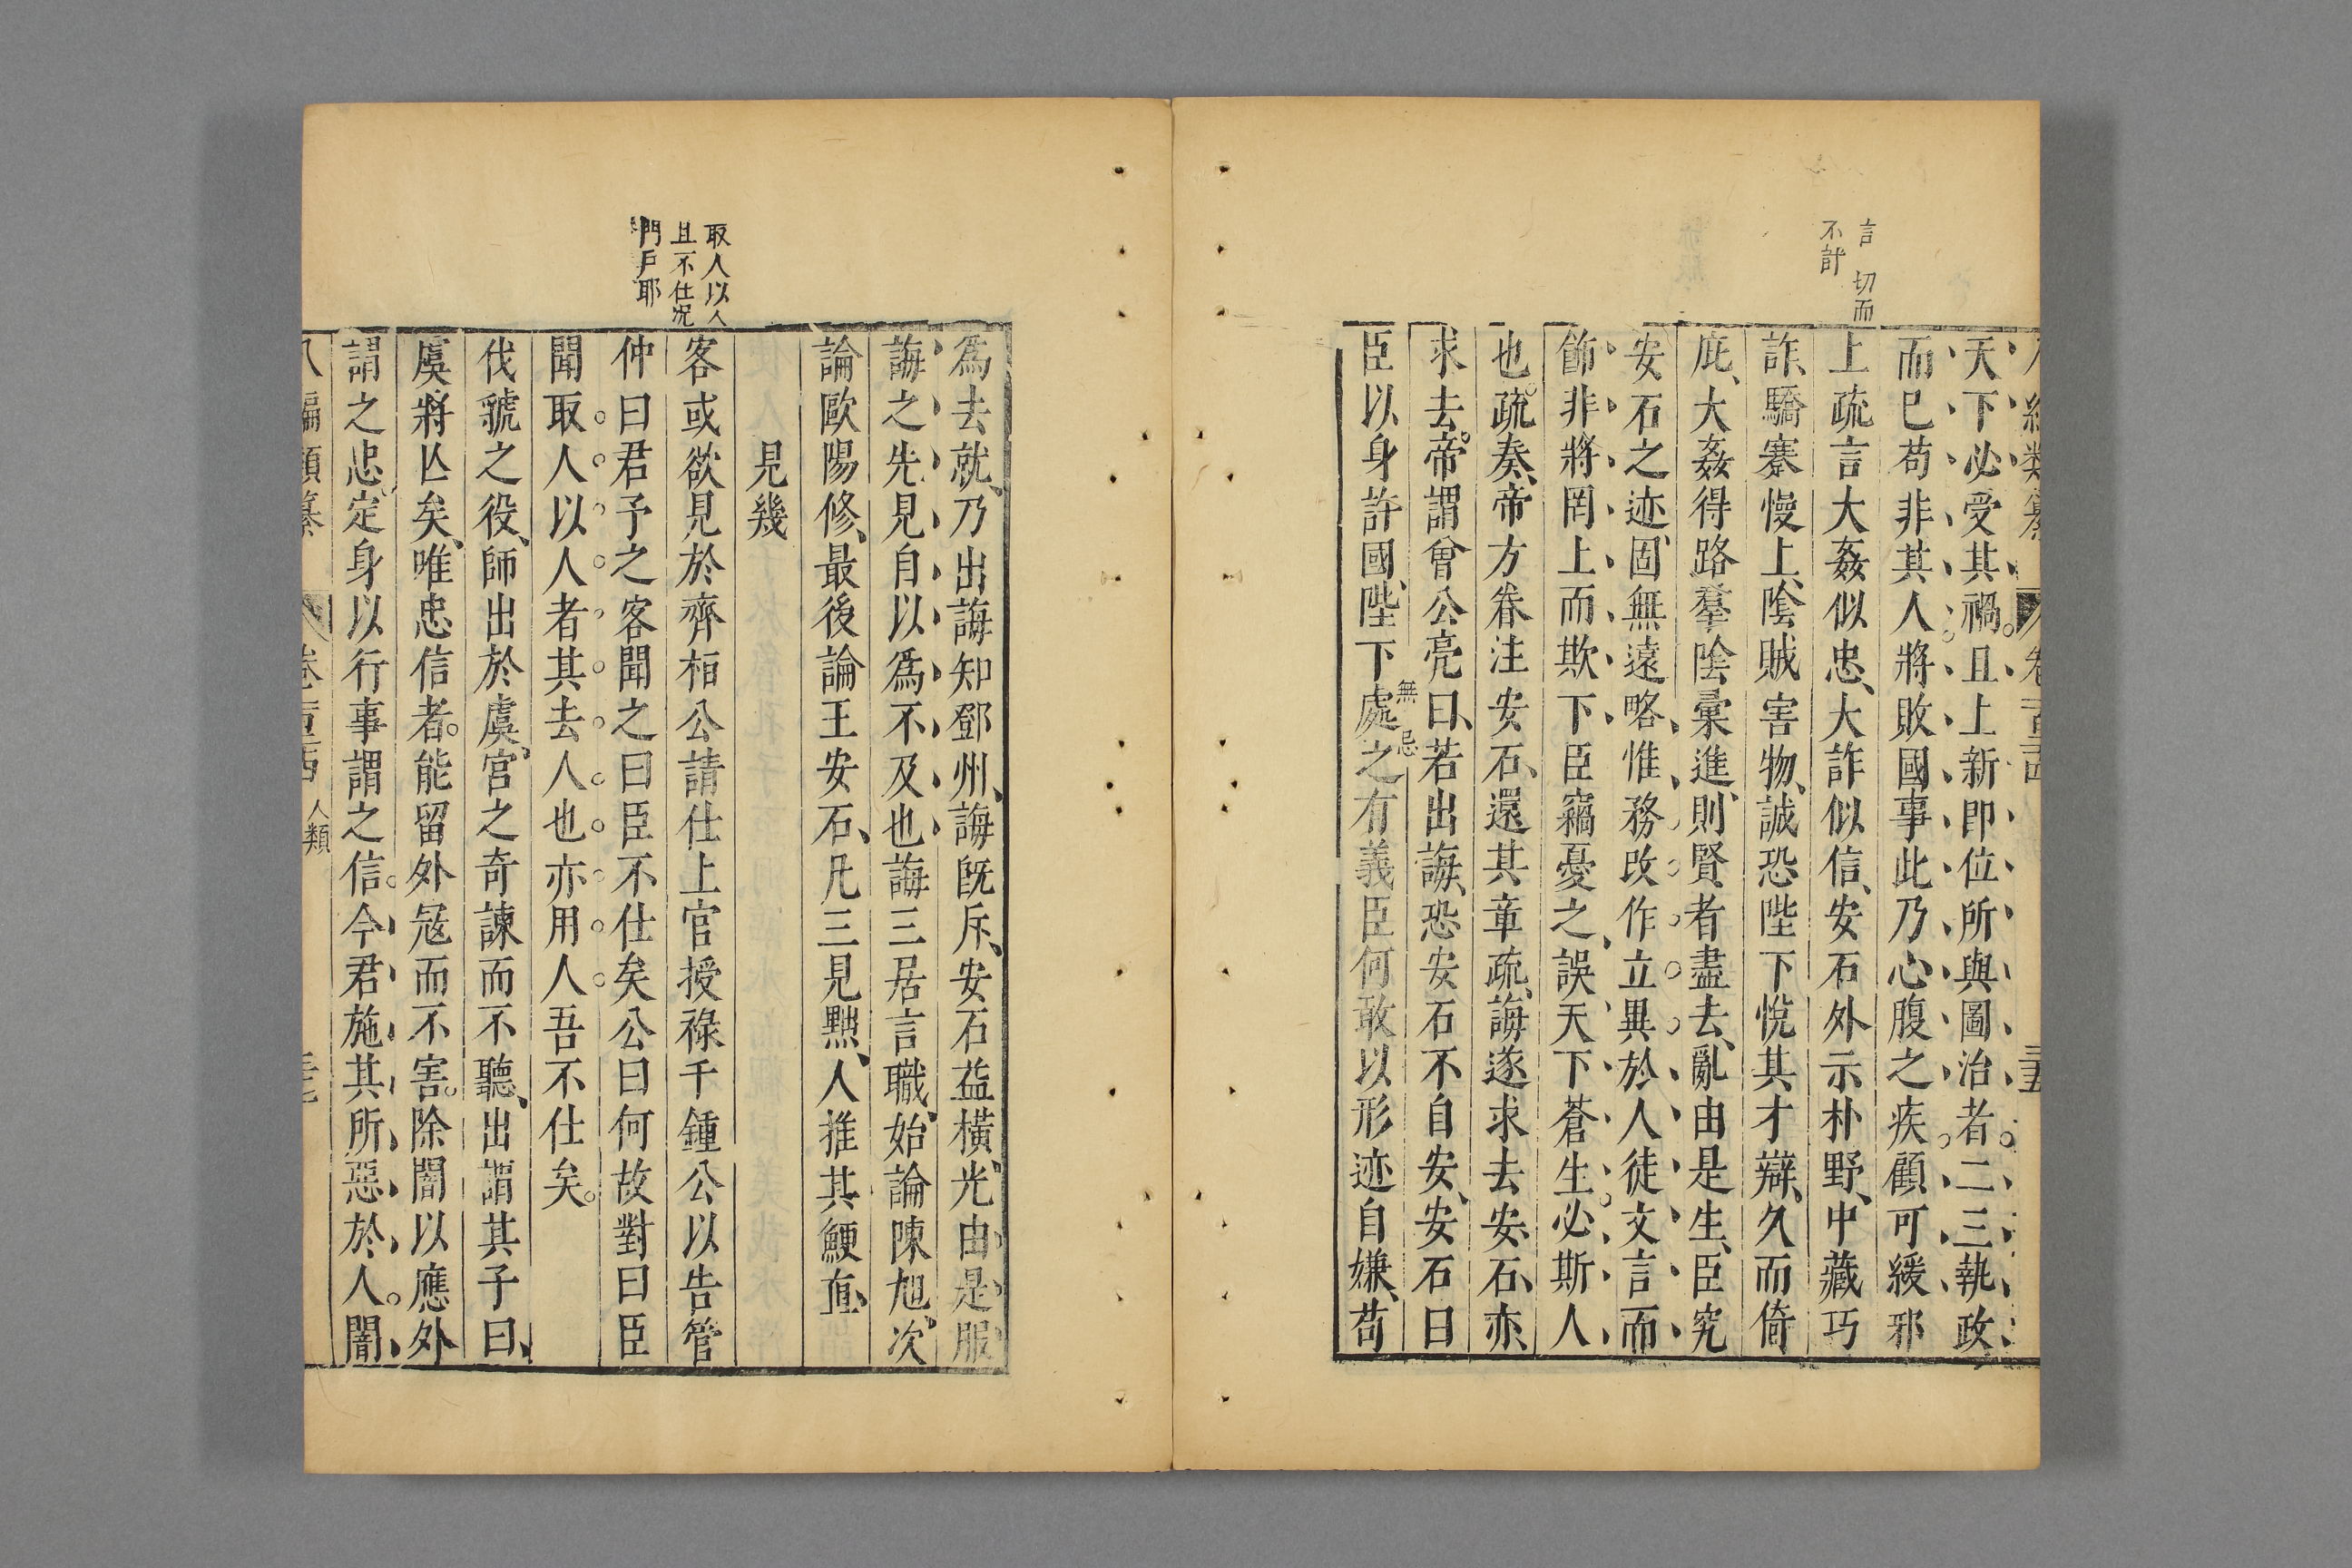 言切而
不計
天下必受其禍且上新即位所與圖治者二三執政
而已苟非其人將敗國事此乃心腹之疾顧可緩邪
上疏言大姦似忠大詐似信安石外示朴野中藏巧
詐驕蹇慢上陰賊害物誠恐陛下悅其才辯久而倚
庇大姦得路羣陰彙進則賢者盡去亂由是生臣究
安石之迹固無遠略惟務改作立異於人徒文言而
飾非將罔上而欺下臣竊憂之誤天下蒼生必斯人
也疏奏帝方眷注安石還其章疏誨遂求去安石亦
求去帝謂曾公亮曰若出誨恐安石不自安安石曰
臣以身許國陛下處之有義臣何敢以形迹自嫌苟
無忌
取人以人
且不仕況
門戶耶
為去就乃出誨知鄧州誨既斥安石益橫光由是服
誨之先見自以為不及也誨三居言職始論陳旭次
論歐陽修最後論王安石凡三見黜人推其鯁直
見幾
客或欲見於齊桓公請仕上官授祿千鍾公以告管
仲曰君予之客聞之曰臣不仕矣公曰何故對曰臣
聞取人以人者其去人也亦用人吾不仕矣
伐虢之役師出於虞宮之奇諫而不聽出謂其子曰
虞將亾矣唯忠信者能留外寇而不害除闇以應外
謂之忠定身以行事謂之信今君施其所惡於人闇
八編類纂 卷 人類